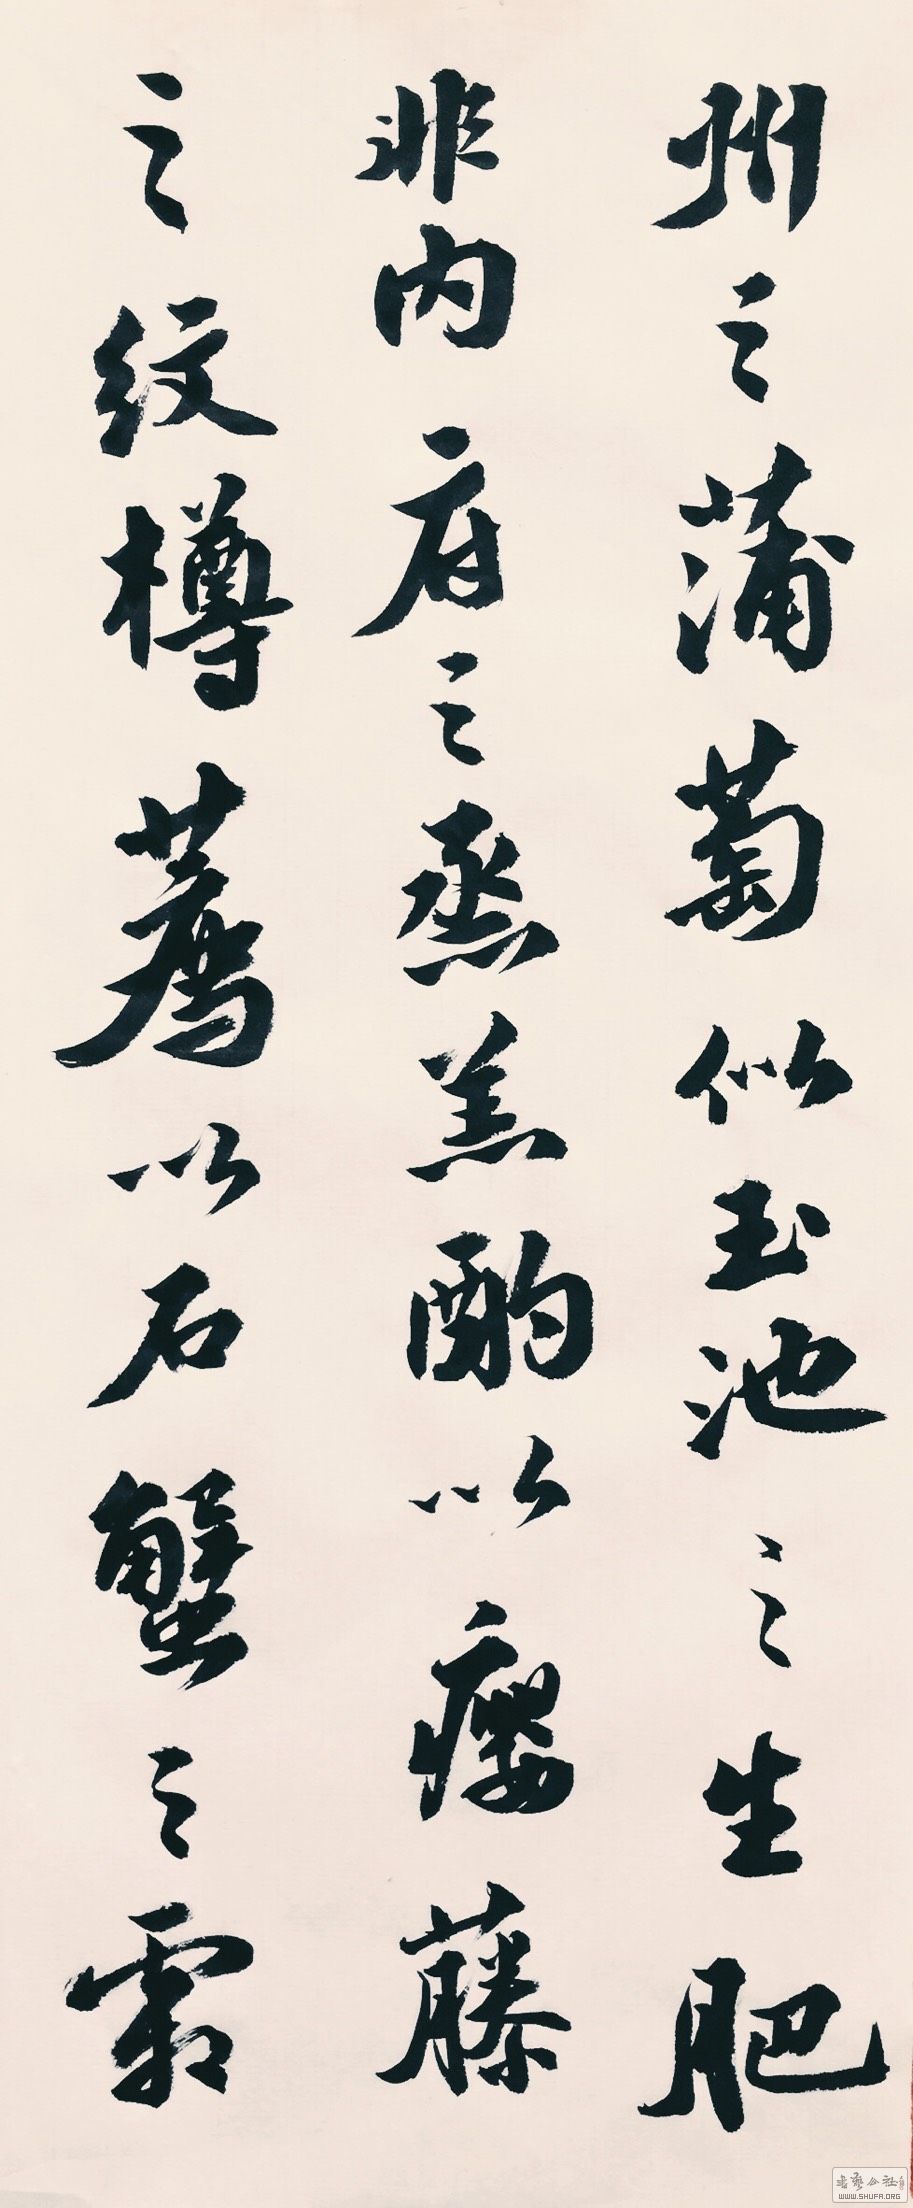 州之蒲萄似玉池之生肥
非内府之烝羔酌以瘿藤
之纹樽荐以石蟹之霜
書藝公社
WWW.SHUFA.ORG